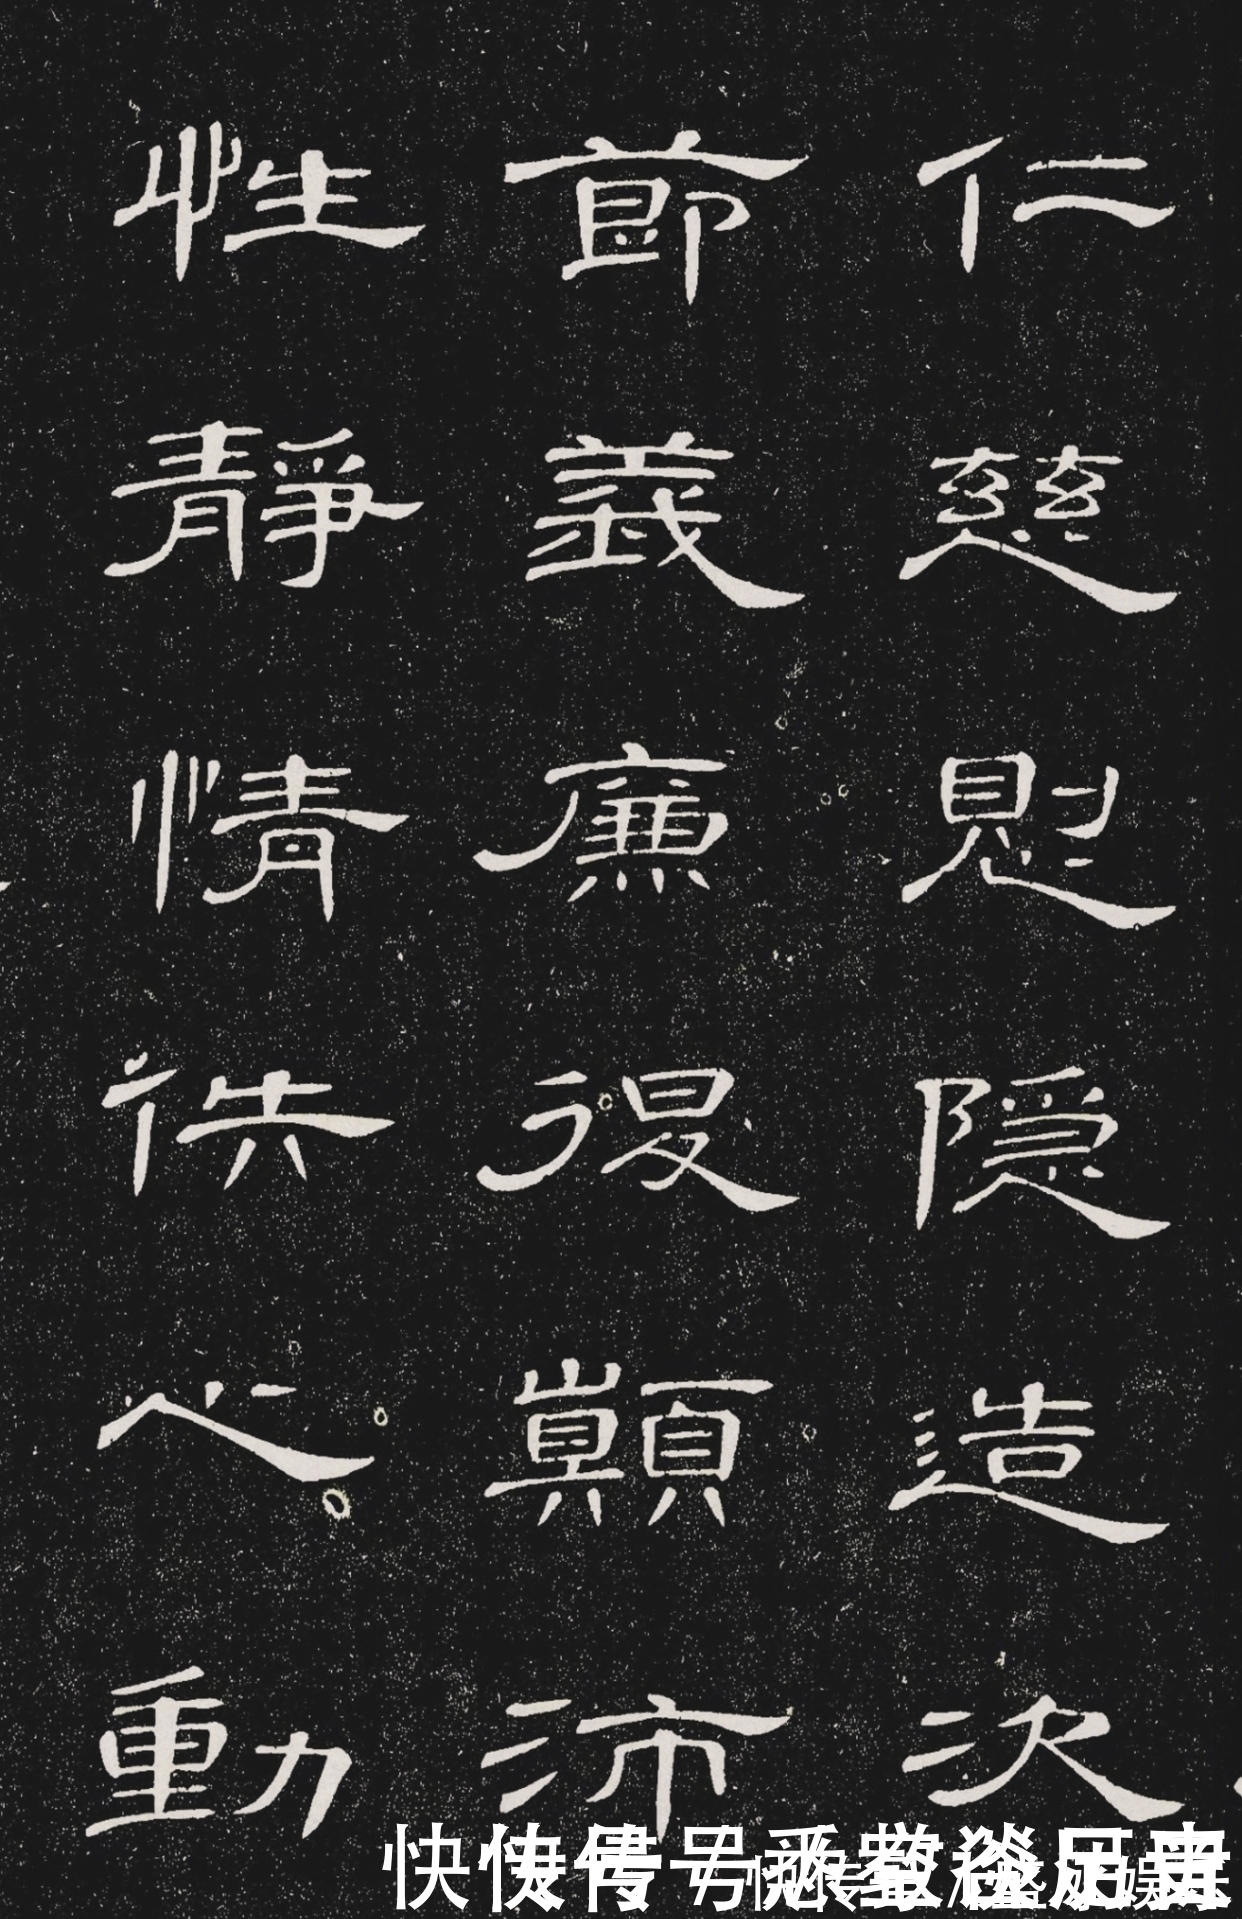 仁慈惻隱造次
節義廉退顛沛
性靜情心動
快传号/